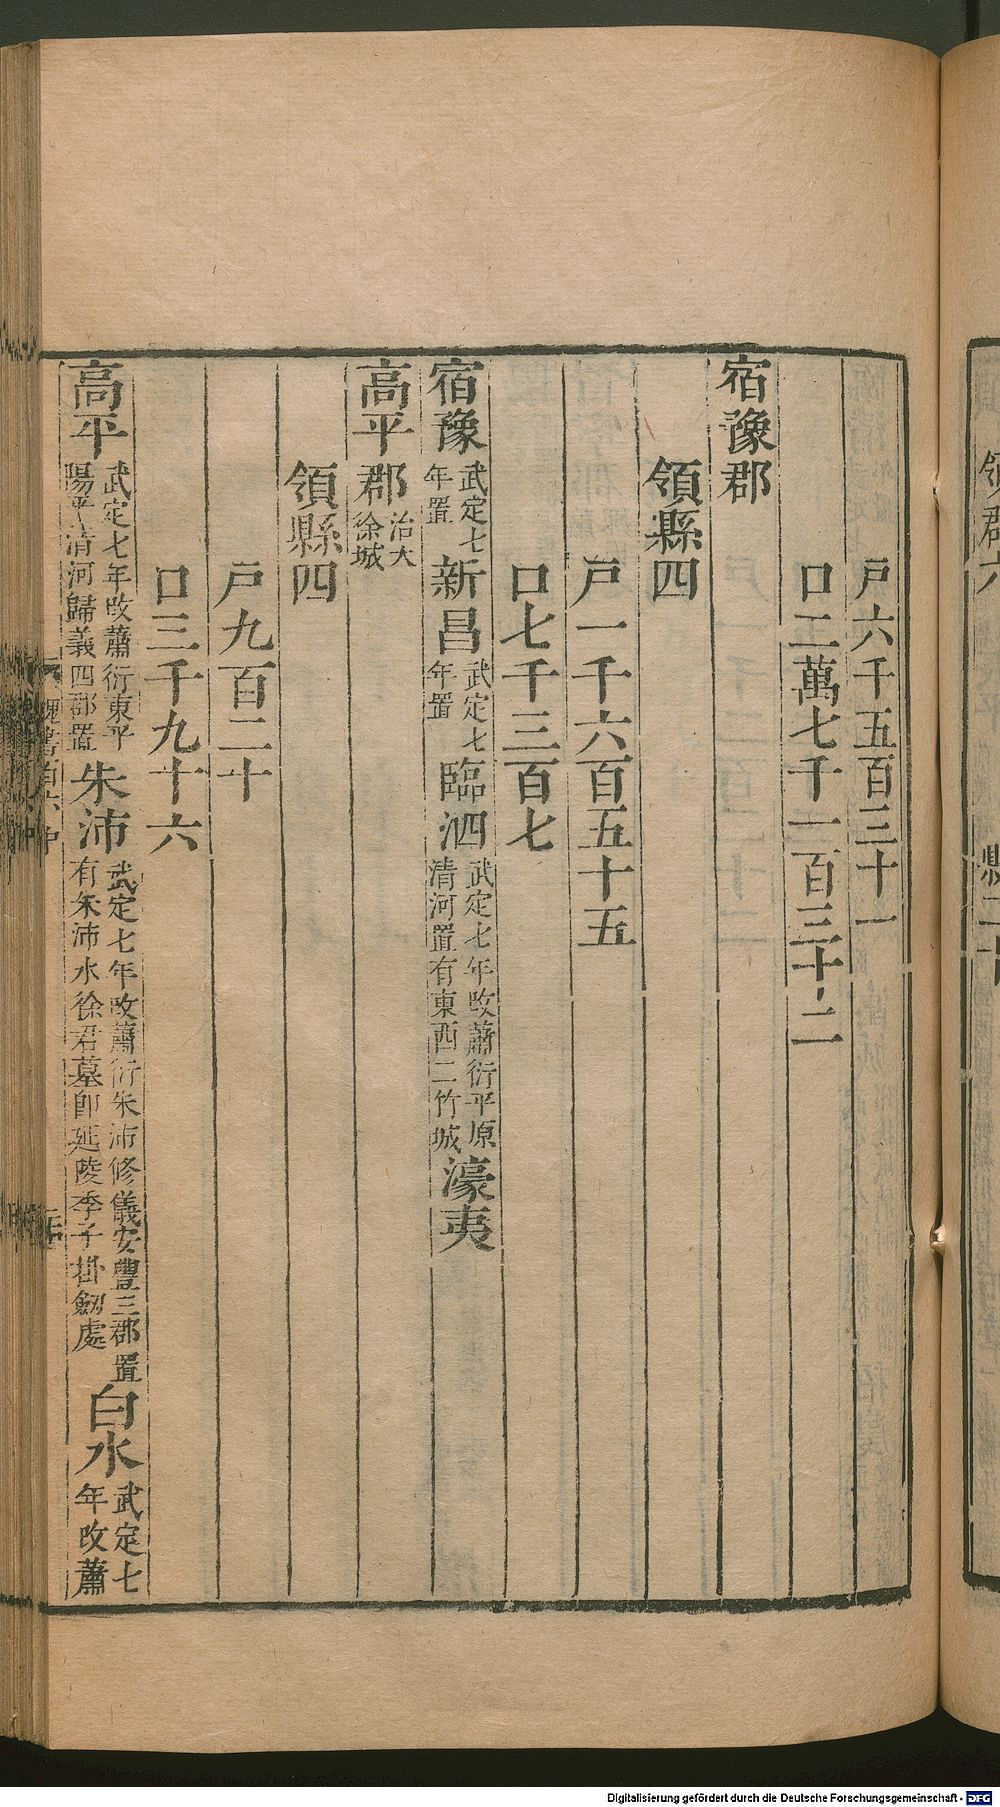 戸六千五百三十一
口二萬七千一百三十二
宿豫郡
領縣四
戸一千六百五十五
口七千三百七
宿豫武定七年置新昌武定七年置臨泗武定七年改蕭衍平原清河置有東西二竹城濠夷
高平郡治大徐城
領縣四
戸九百二十
口三千九十六
高平武定七年改蕭衍東平陽平清河歸義四郡置朱沛武定七年改蕭衍朱沛修儀安豐三郡置有朱沛水徐君墓卽延陵季子掛劒處白水武定七年改蕭
Digitalisierung gefördert durch die Deutsche Forschungsgemeinschaft - DFG